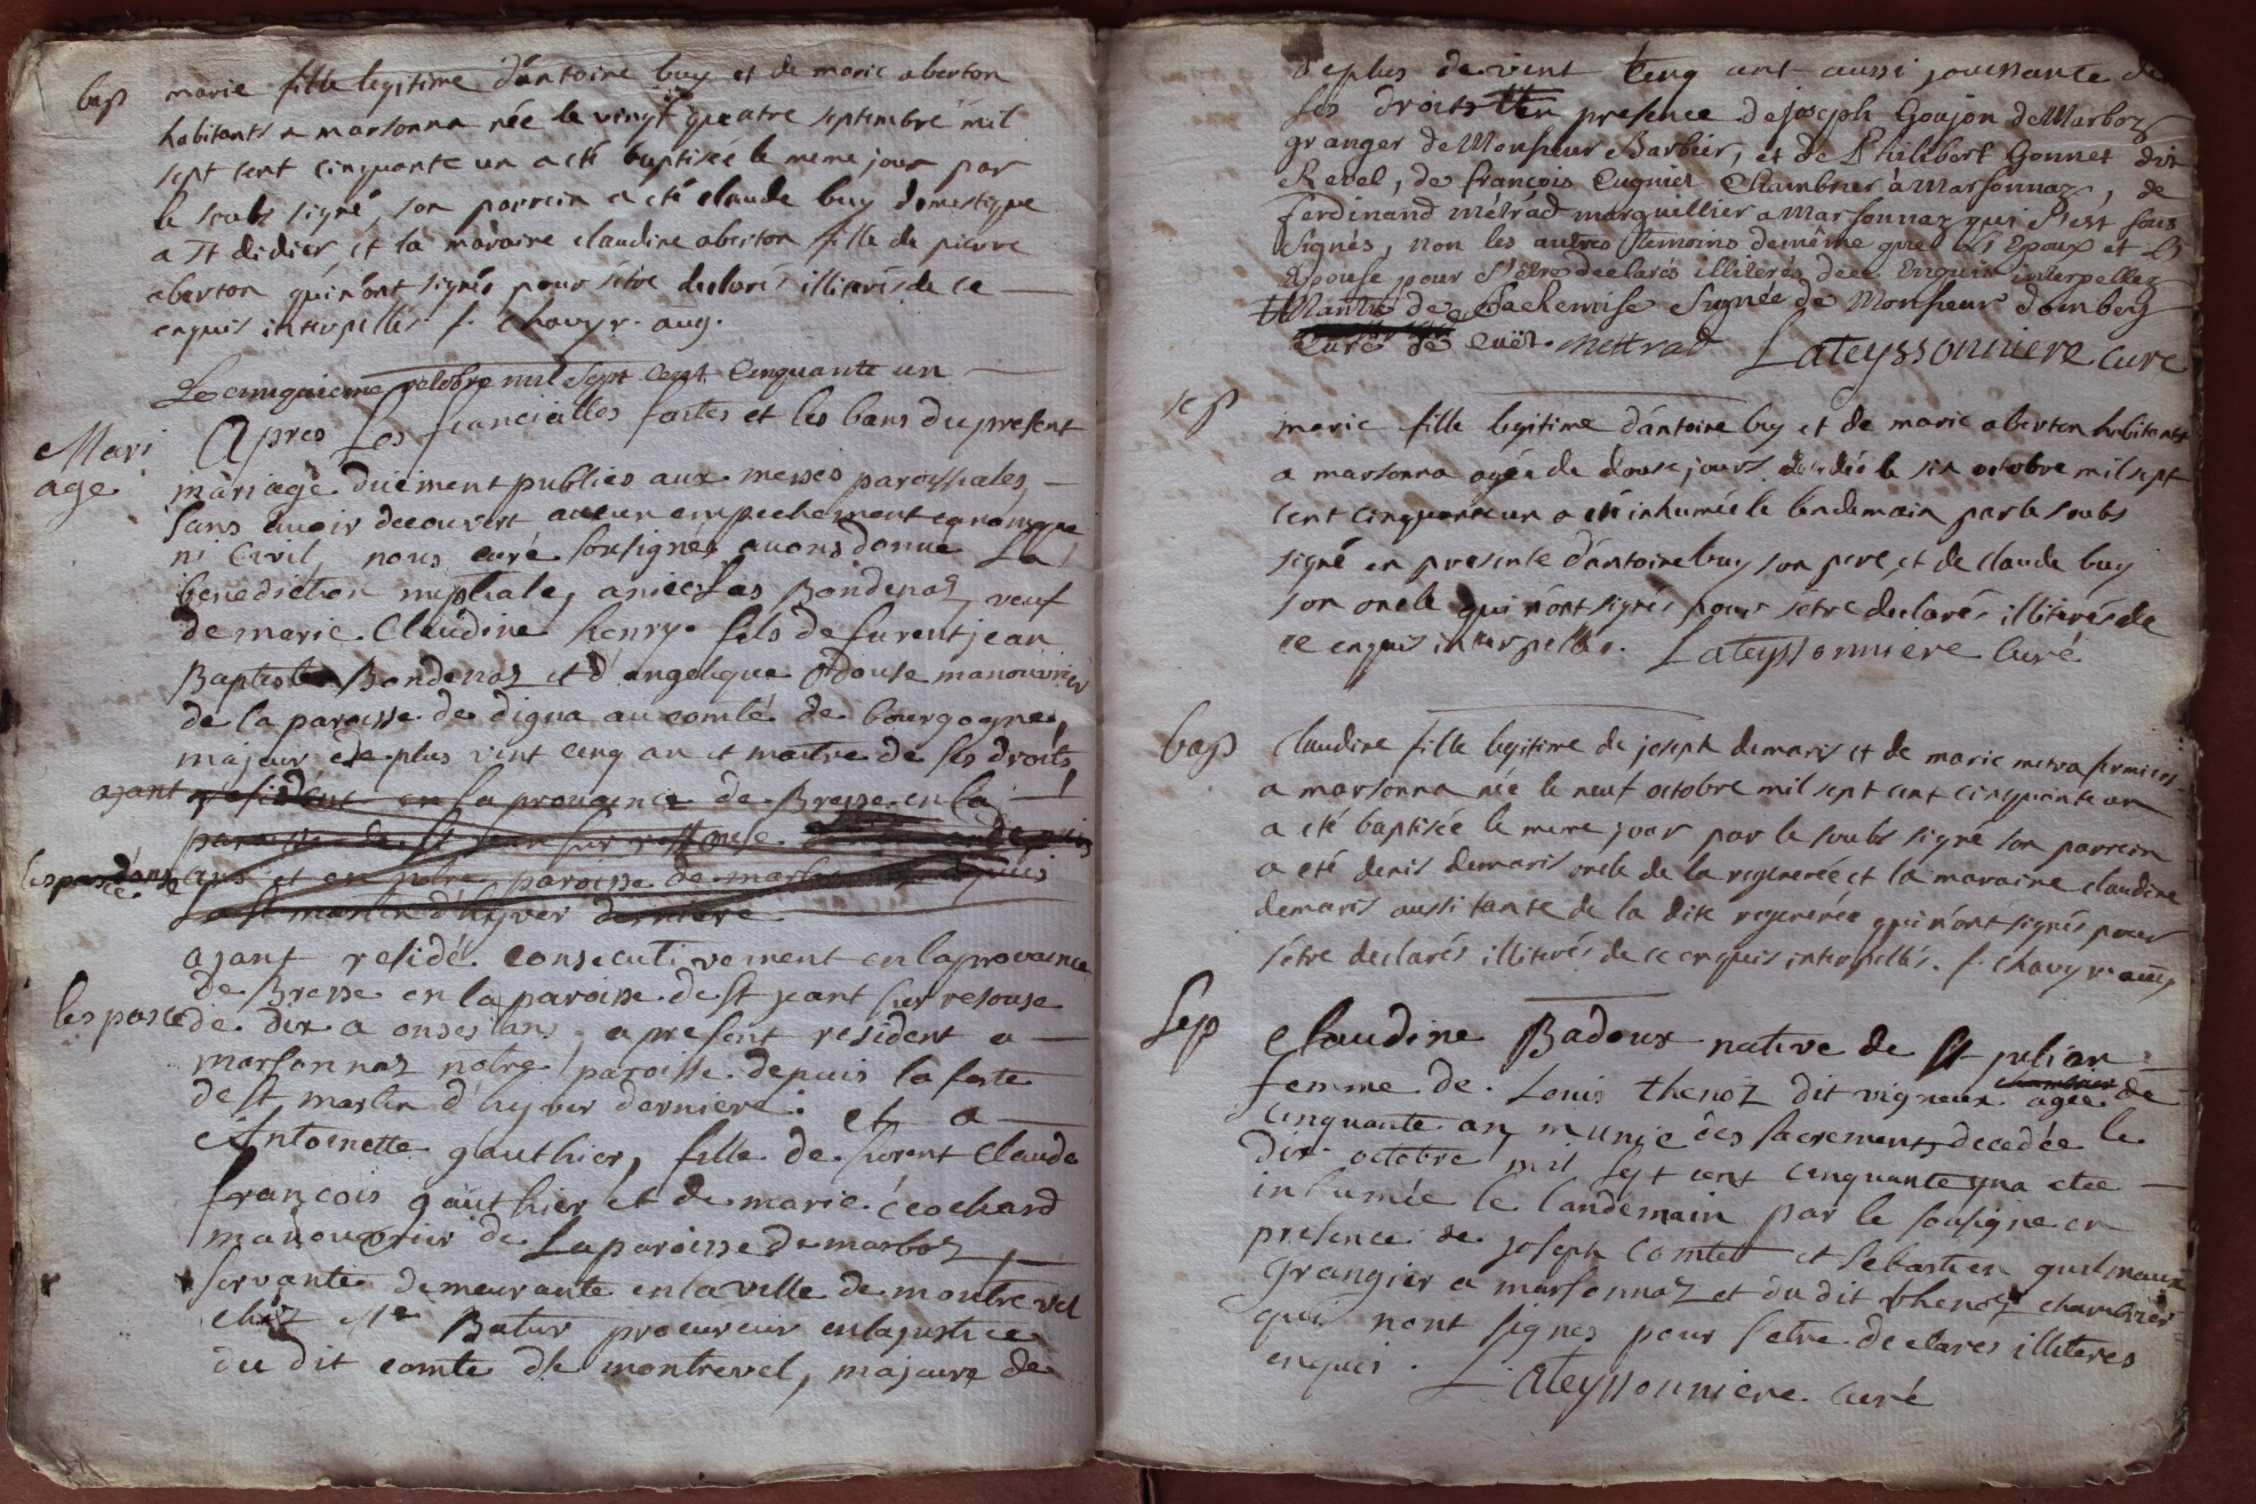 bap marie fille legitime d'antoine buy et de marie aberton
habitants a marsonna née le vingt quatre septembre mil
sept cent cinquante un a eté baptisée le meme jour par
le soubs signé, son parrein a eté claude buy domestique
a st didier, et la maraine claudine aberton fille de pierre
aberton qui n'ont signés pour s'etre declarés illiterés de ce
enquis interpellés f. chavy v. aug.
Le cinquieme octobre mil sept cent cinquante un
Mari
age
Apres les fianciailles faites et les bans du present
mariage duëment publies aux messes paroissiales,
sans avoir decouvert aucun empechement canonique
ni Civil, nous curé sousignes avons donné La
benediction nuptiale, a niecolas Bondenaz, veuf
de marie Claudine henry fils de furent jean
Baptiste Bondenaz et d'angelique Odouse manouvrier
de la paroisse de digna au comté de bourgogne,
majeur de plus vint cinq an et maitre de ses droits,
ajant resident en la provaence de Bresse en la
paroisse de st jean sur ressouse
ans et en notre paroisse de depuis
La st martin d'hyver derniere
ajant residé consecutivement en la provaence
de Bresse en la paroisse de st jeant sur resouse
lespasce de dix a onses ans, a present resident a
marsonnaz notre paroisse depuis la faste
de st martin d'hyver derniere: et a
Antoinette gauthier, fille de furent Claude
françois gauthier et de marie écochard
manouvrier de La paroisse de marboz,
servante demeurante en la ville de montrevel
chéz Mre Batur procureur en la justice
du dit comté de montrevel, majeure de
deplus de vint Cinq ant aussi jouissante de
ses droits en presence de joseph Goujon de Marboz
granger de Monsieur Barbier, et de Philibert Gonnet dit
Revel, de françois Cugniet Chambrier à Marsonnaz, de
ferdinand métrad marguillier a Marsonnaz qui s'est sous
signés, non les autres temoins demême que les Epoux et La
Epouse pour s'etre declarés illiterés de ce Enquis interpellez
de Monsieur dombey
Curé de Cuët. mettrad Lateyssonniere curé
sep marie fille legitime d'antoine buy et de marie aberton habitants
a marsonna agée de douse jours decedée le six octobre mil sept
cent cinquante un a eté inhumée le lendemain par le soubs
signé en presence d'antoine buy son pere, et de claude buy
son oncle qui n'ont signés pour s'etre declarés illiterés de
ce enquis interpellés. Lateyssonniere Curé
bap claudine fille legitime de joseph demaris et de marie metra fermiers
a marsonna née le neuf octobre mil sept cent cinquante un
a eté baptisée le meme jour par le soubs signé son parrein
a eté denis demaris oncle de la regenerée et la maraine claudine
demaris aussi tante de la dite regenerée qui n'ont signés pour
s'etre declarés illiterés de ce enquis interpellés. f. chavy v. aug
Sep Claudine Badoux native de st julian
femme de Louis thenoz dit vigneux agée de
cinquante an munie des sacrements decedée le
dix octobre mil sept cent cinquante un a etee
inhumée le landemain par le sousigne en
presence de joseph Comtet et sebastien guilmaux
grangier a marsonnaz et du dit thenoz chambrier
qui nont signes pour setre declares illiteres
enquis. Lateyssonniere curé